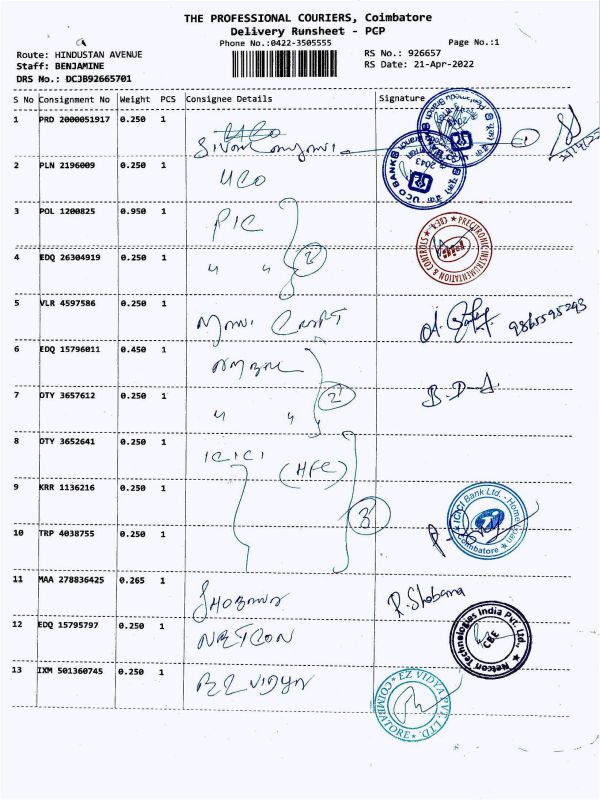 THE PROFESSIONAL COURIERS, Coimbatore
Delivery Runsheet - PCP
Phone No.:0422-3505555
Page No.:1
Route: HINDUSTAN AVENUE
Staff: BENJAMINE
DRS No.: DCJB92665701
RS No.: 926657
RS Date: 21-Apr-2022
S No Consignment No Weight PCS Consignee Details Signature
1 PRD 2000051917 0.250 1 UCO
2 PLN 2196009 0.250 1 UCO
UCO BANK
2043
3 POL 1200825 0.950 1 PIC
PRECTRONIC INSTRUMENTATION & CONTROLS ★ CBE-4 ★
4 EDQ 26304919 0.250 1 " "
5 VLR 4597586 0.250 1
9865595293
6 EDQ 15796011 0.450 1
7 OTY 3657612 0.250 1 " " 2
B.D.
8 OTY 3652641 0.250 1 ICICI (HFC)
9 KRR 1136216 0.250 1
3
ICICI Bank Ltd. - Home
Coimbatore
10 TRP 4038755 0.250 1
11 MAA 278836425 0.265 1 SHOBANA R. Shobana
12 EDQ 15795797 0.250 1 NETCON
Netcon Technologies India Pvt. Ltd.
CBE
13 IXM 501360745 0.250 1 EZ VIDYA
EZ VIDYA PVT. LTD.
COIMBATORE